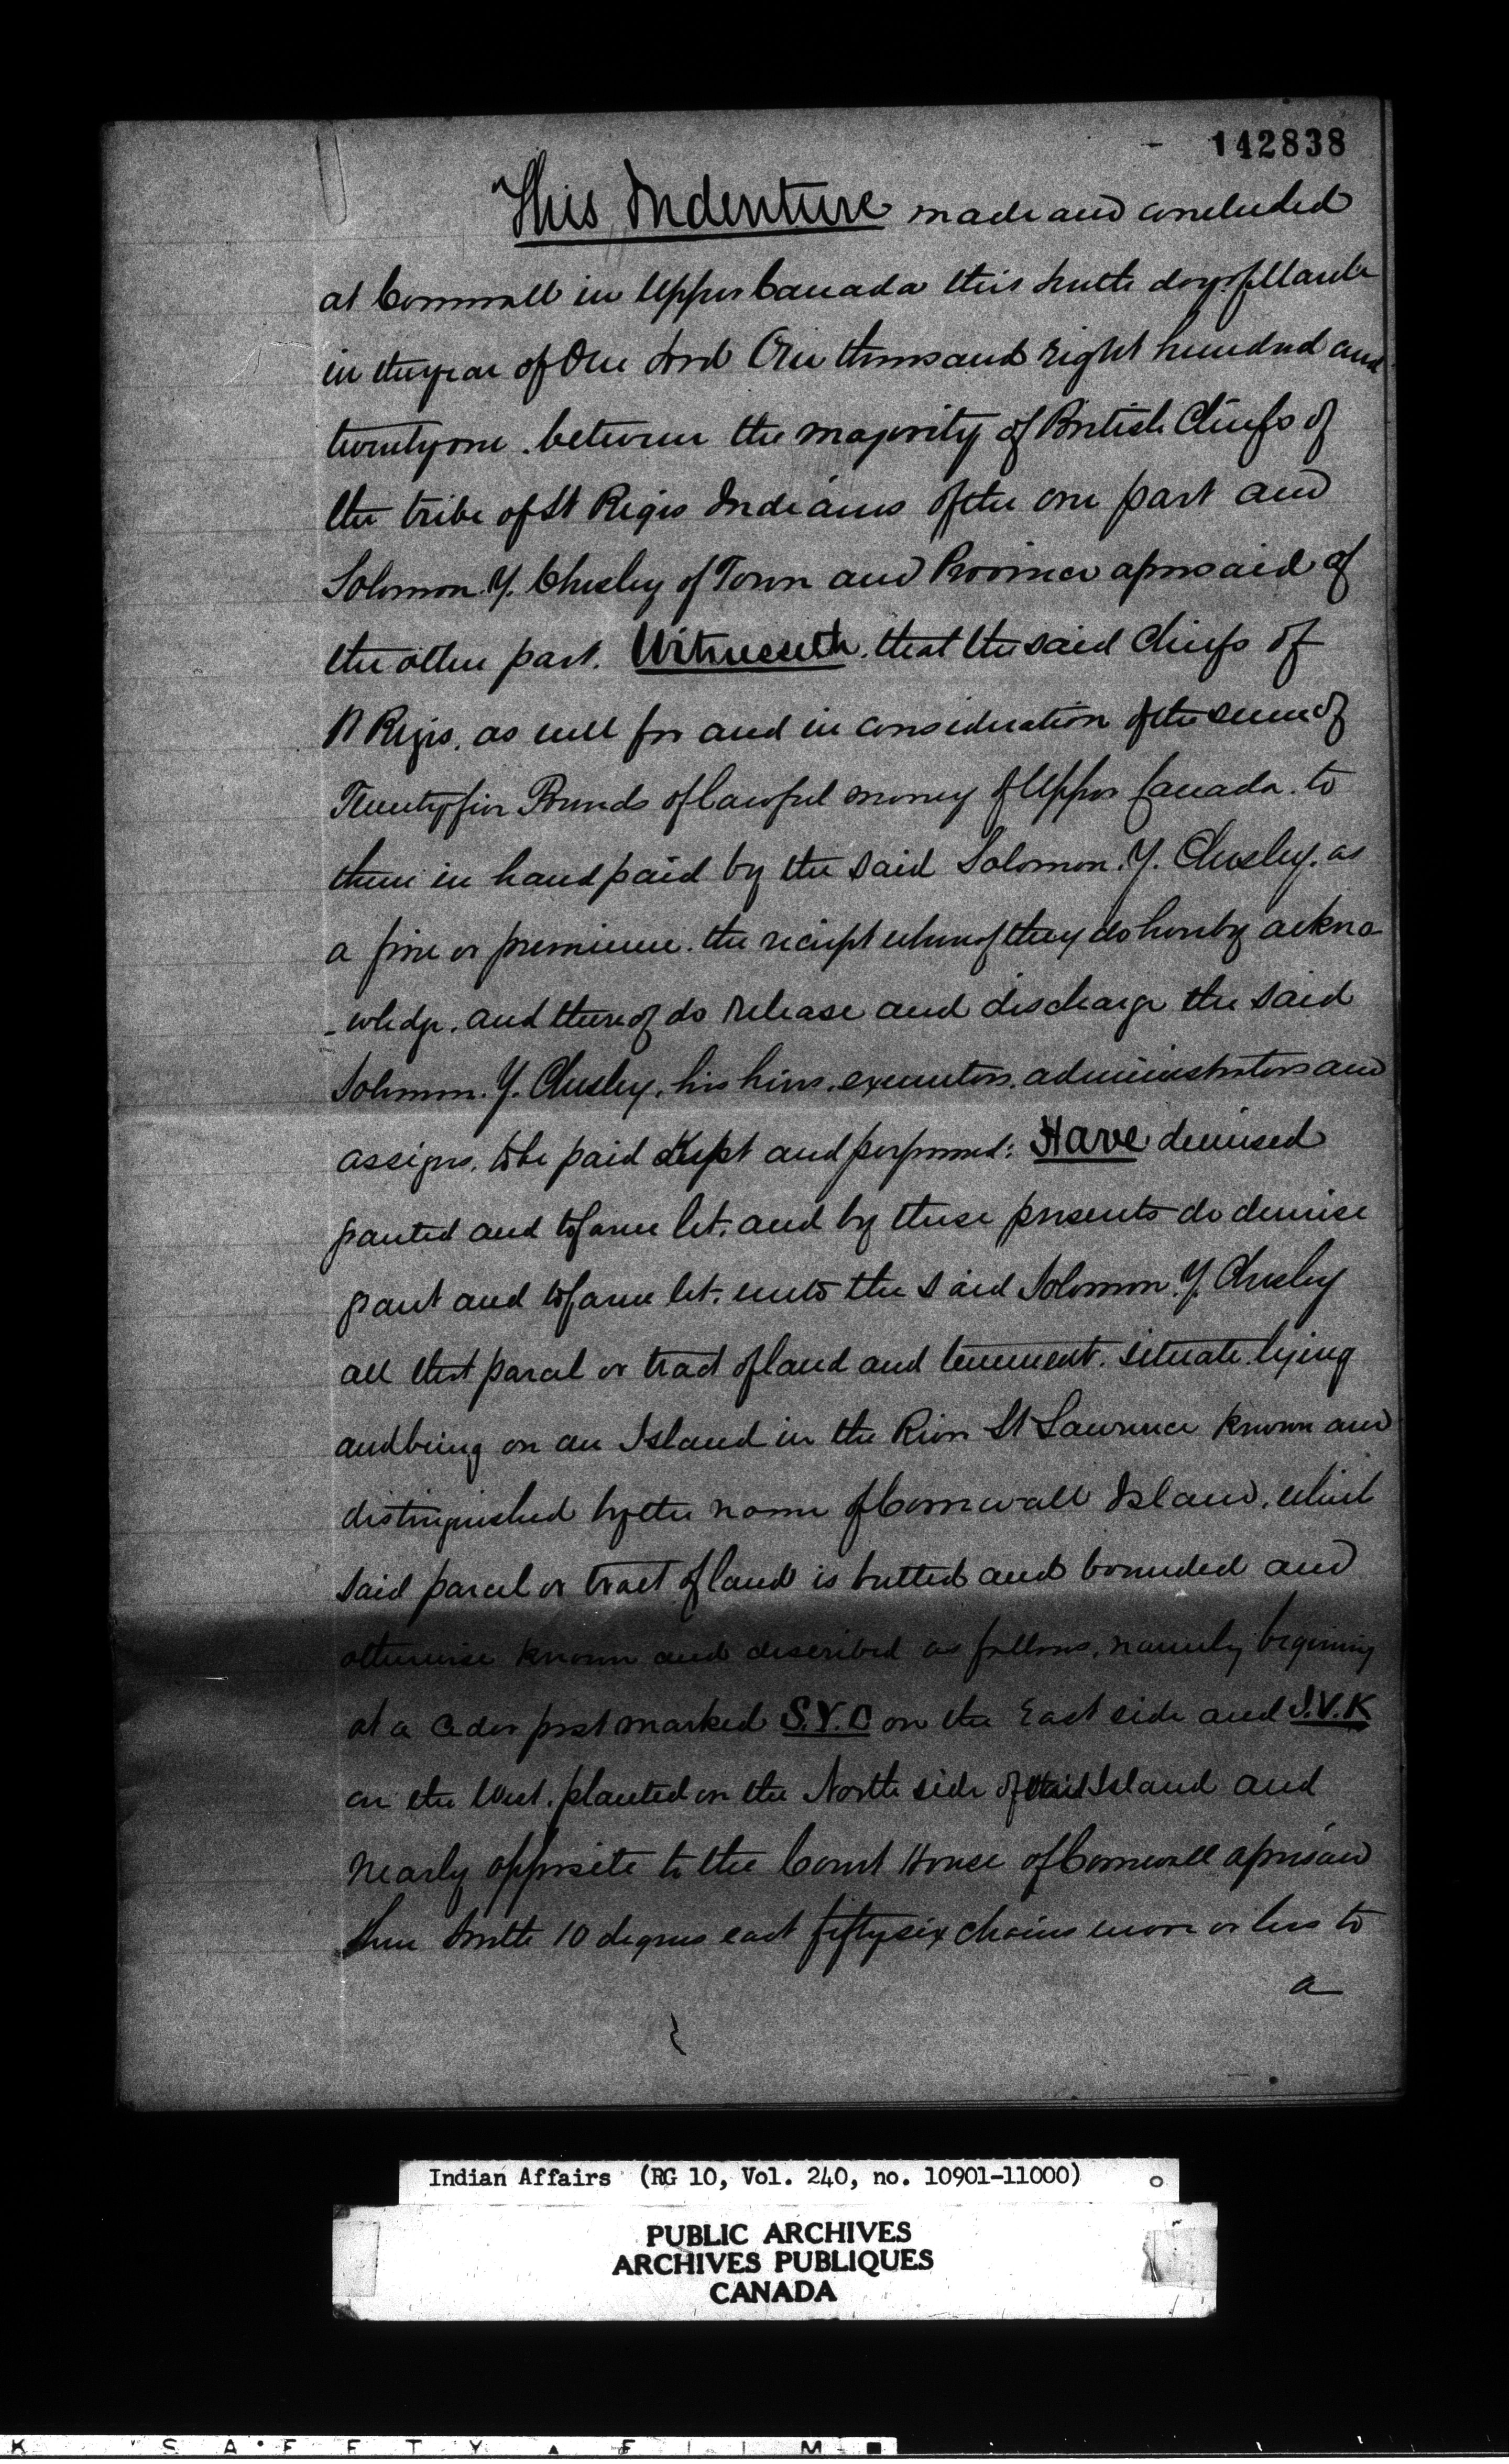 142838
This Indenture made and concluded
at Cornwall in Upper Canada this tenth day of March
in the year of Our Lord One thousand eight hundred and
twenty one. between the majority of British Chiefs of
the tribe of St Regis Indians of the one part and
Solomon. Y. Chesley of Town and Province aforesaid of
the other part. Witnesseth. that the said Chiefs of
St Regis. as well for and in consideration of the sum of
Twenty five Pounds of lawful money of Upper Canada. to
them in hand paid by the said Solomon. Y. Chesley. as
a fine or premium. the receipt whereof they do hereby ackno
-wledge. and thereof do release and discharge the said
Solomon. Y. Chesley. his heirs. executors. administrators and
assigns. to be paid kept and performed: Have demised
granted and to farm let. and by these presents do demise
grant and to farm let. unto the said Solomon. Y. Chesley
all that parcel or tract of land and tenement. situate. lying
and being on an Island in the River St Lawrence known and
distinguished by the name of Cornwall Island. which
said parcel or tract of land is butted and bounded and
otherwise known and described as follows. namely begining
at a Ceder post marked S.Y.C on the East side and J.V.K
on the West. planted on the North side of said Island and
nearly opposite to the Court House of Cornwall aforesaid
then South 10 degrees east fifty six chains more or less to
a
Indian Affairs (RG 10, Vol. 240, no. 10901-11000)
PUBLIC ARCHIVES
ARCHIVES PUBLIQUES
CANADA
K SAFETY FILM